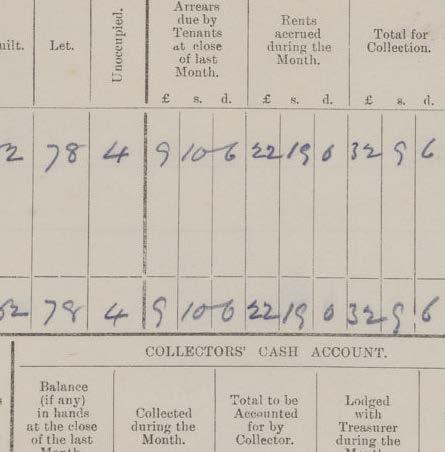 uilt. Let. Unoccupied. Arrears due by Tenants at close of last Month. Rents accrued during the Month. Total for Collection.
£ s. d. £ s. d. £ s. d.
2 78 4 9 10 6 22 19 0 32 9 6
2 78 4 9 10 6 22 19 0 32 9 6
COLLECTORS' CASH ACCOUNT.
Balance (if any) in hands at the close of the last Month. Collected during the Month. Total to be Accounted for by Collector. Lodged with Treasurer during the